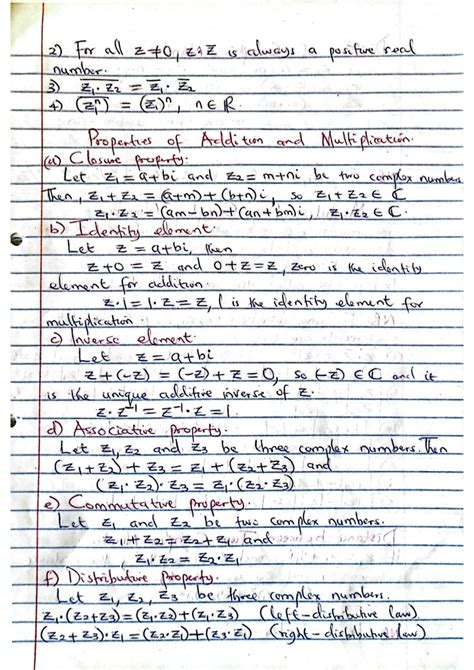 2) For all z ≠ 0, z z̄ is always a positive real
number.
3) \overline{z₁ · z₂} = z̄₁ · z̄₂
4) \overline{(z₁ⁿ)} = (z̄₁)ⁿ, n ∈ R.
Properties of Addition and Multiplication.
(a) Closure property.
Let z₁ = a+bi and z₂ = m+ni be two complex numbers
Then, z₁ + z₂ = (a+m) + (b+n)i, so z₁ + z₂ ∈ ℂ
z₁ · z₂ = (am – bn) + (an + bm)i, z₁ · z₂ ∈ ℂ.
b) Identity element.
Let z = a+bi, then
z+0 = z and 0+z = z, zero is the identity
element for addition.
z·1 = 1·z = z, 1 is the identity element for
multiplication.
c) Inverse element.
Let z = a+bi
z + (-z) = (-z) + z = 0, so (-z) ∈ ℂ and it
is the unique additive inverse of z.
z · z⁻¹ = z⁻¹ · z = 1.
d) Associative property.
Let z₁, z₂ and z₃ be three complex numbers. Then
(z₁ + z₂) + z₃ = z₁ + (z₂ + z₃) and
(z₁ · z₂) · z₃ = z₁ · (z₂ · z₃)
e) Commutative property.
Let z₁ and z₂ be two complex numbers.
z₁ + z₂ = z₂ + z₁ and
z₁ · z₂ = z₂ · z₁
f) Distributive property.
Let z₁, z₂, z₃ be three complex numbers.
z₁ · (z₂ + z₃) = (z₁ · z₂) + (z₁ · z₃) (left – distributive law)
(z₂ + z₃) · z₁ = (z₂ · z₁) + (z₃ · z₁) (right – distributive law)